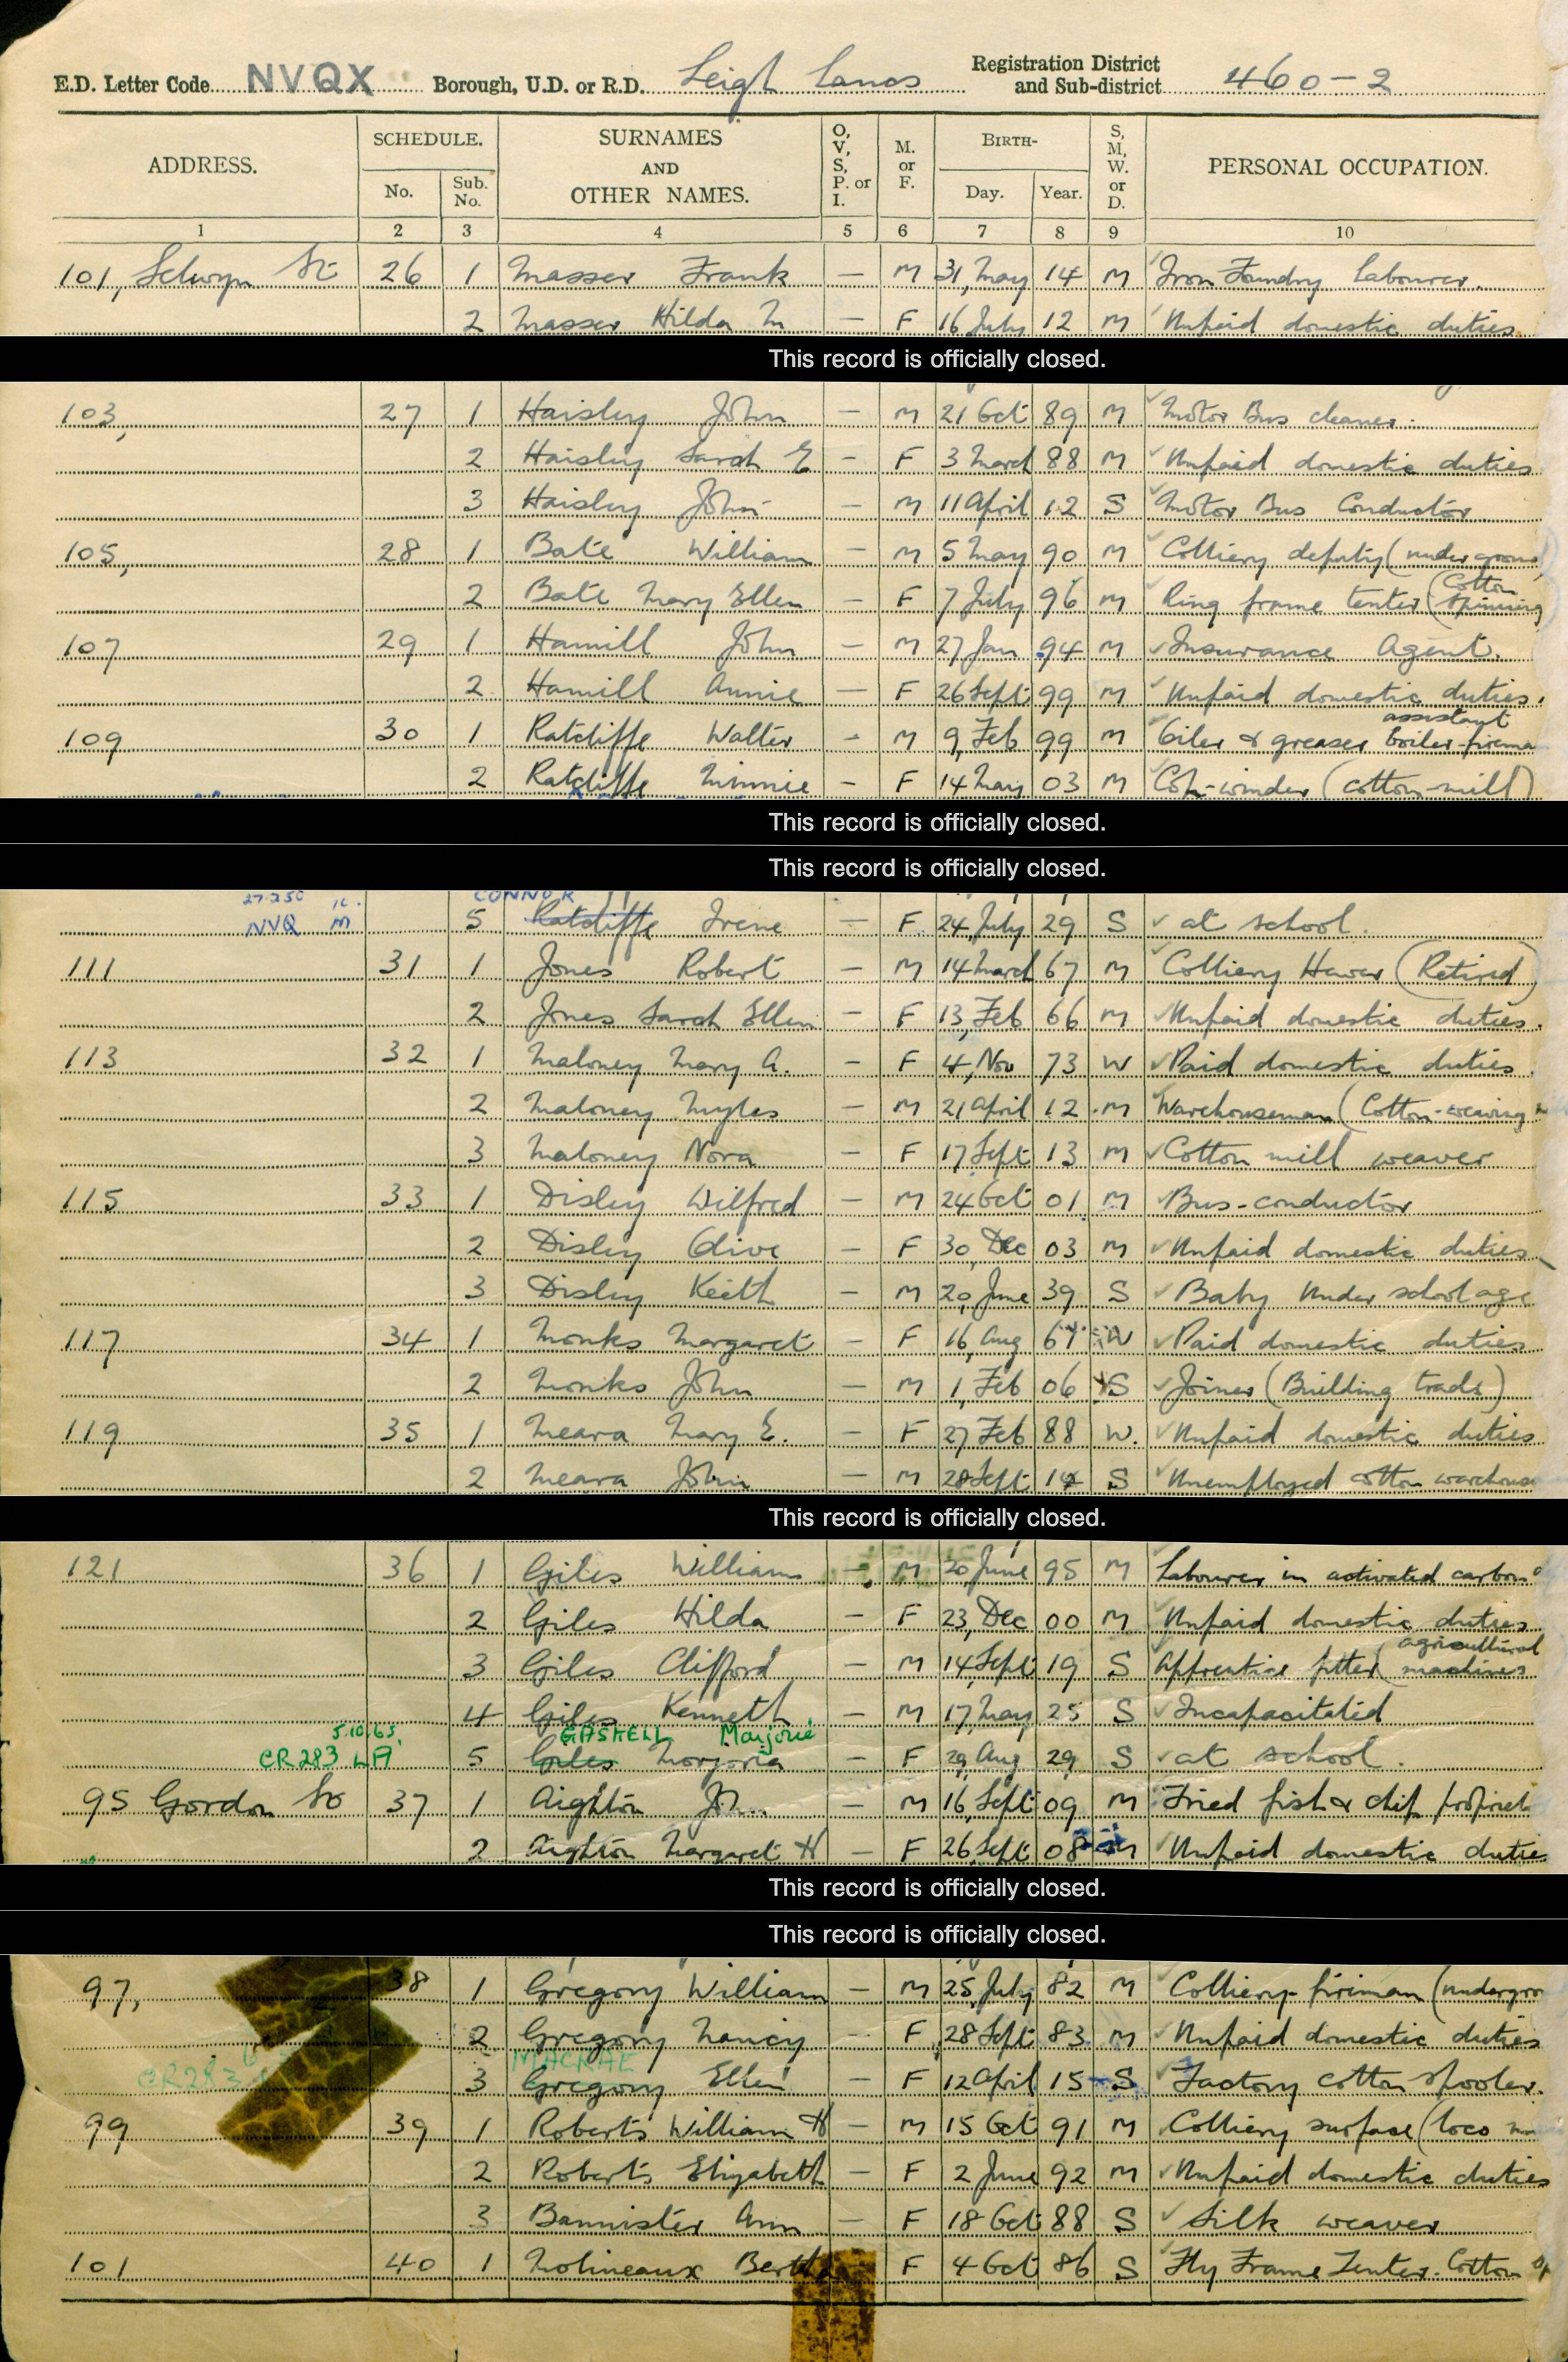 E.D. Letter Code NVQX Borough, U.D. or R.D. Leigh Lancs Registration District and Sub-district 460-2
ADDRESS. SCHEDULE. No. Sub. No. SURNAMES AND OTHER NAMES. O, V, S, P. or I. M. or F. BIRTH- Day. Year. S, M, W. or D. PERSONAL OCCUPATION.
1 2 3 4 5 6 7 8 9 10
101, Selwyn St 26 1 Masser Frank — M 31, May 14 M Iron Foundry Labourer.
2 Masser Hilda M — F 16 July 12 M Unpaid domestic duties
This record is officially closed.
103, 27 1 Haisley John — M 21 Oct 89 M Motor Bus cleaner.
2 Haisley Sarah E — F 3 March 88 M Unpaid domestic duties
3 Haisley John — M 11 April 12 S Motor Bus Conductor
105, 28 1 Bate William — M 5 May 90 M Colliery deputy (under ground)
2 Bate Mary Ellen — F 7 July 96 M Ring frame tenter (Cotton Spinning
107 29 1 Hamill John — M 27 Jan 94 M Insurance Agent.
2 Hamill Annie — F 26 Sept 99 M Unpaid domestic duties.
109 30 1 Ratcliffe Walter - M 9, Feb 99 M Oiler & greaser assistant boiler-firema
2 Ratcliffe Minnie - F 14 May 03 M Cop-winder (cotton-mill)
This record is officially closed.
This record is officially closed.
27.2.50 CONNOR
NVQ M 5 Ratcliffe Irene — F 24, July 29 S at school.
111 31 1 Jones Robert — M 14 March 67 M Colliery Hewer (Retired)
2 Jones Sarah Ellen — F 13, Feb 66 M Unpaid domestic duties.
113 32 1 Maloney Mary A. — F 4, Nov 73 W Paid domestic duties.
2 Maloney Myles — M 21 April 12 M Warehouseman (Cotton-weaving
3 Maloney Nora — F 17 Sept 13 M Cotton mill weaver
115 33 1 Disley Wilfred — M 24 Oct 01 M Bus-conductor
2 Disley Olive — F 30, Dec 03 M Unpaid domestic duties
3 Disley Keith — M 20, June 39 S Baby Under school age
117 34 1 Monks Margaret — F 16, Aug 67 W Paid domestic duties
2 Monks John — M 1, Feb 06 S Joiner (Building trade)
119 35 1 Meara Mary E. — F 27 Feb 88 W. Unpaid domestic duties
2 Meara John — M 28 Sept 14 S Unemployed cotton warehouse
This record is officially closed.
121 36 1 Giles William — M 20, June 95 M Labourer in activated carbon
2 Giles Hilda — F 23, Dec 00 M Unpaid domestic duties
3 Giles Clifford — M 14, Sept 19 S Apprentice fitter (agricultural machines
4 Giles Kenneth — M 17, May 25 S Incapacitated
5.10.65. GASKELL Marjorie
CR283 LA 5 Giles Morjoria — F 29, Aug 29 S at school.
95 Gordon St 37 1 Aighton John — M 16, Sept 09 M Fried fish & chip propriet
2 Aighton Margaret H — F 26, Sept 08 M Unpaid domestic dutie
This record is officially closed.
This record is officially closed.
97, 38 1 Gregory William — M 25, July 82 M Colliery-fireman (undergro
2 Gregory Nancy — F 28 Sept 83 M Unpaid domestic duties
MACRAE
CR283 3 Gregory Ellen — F 12 April 15 S Factory cotton spooler.
99 39 1 Roberts William H — M 15 Oct 91 M Colliery surface (loco
2 Roberts Elizabeth — F 2 June 92 M Unpaid domestic duties
3 Bannister Ann — F 18 Oct 88 S Silk weaver
101 40 1 Molineaux Bertha F 4 Oct 86 S Fly Frame Tenter. Cotton